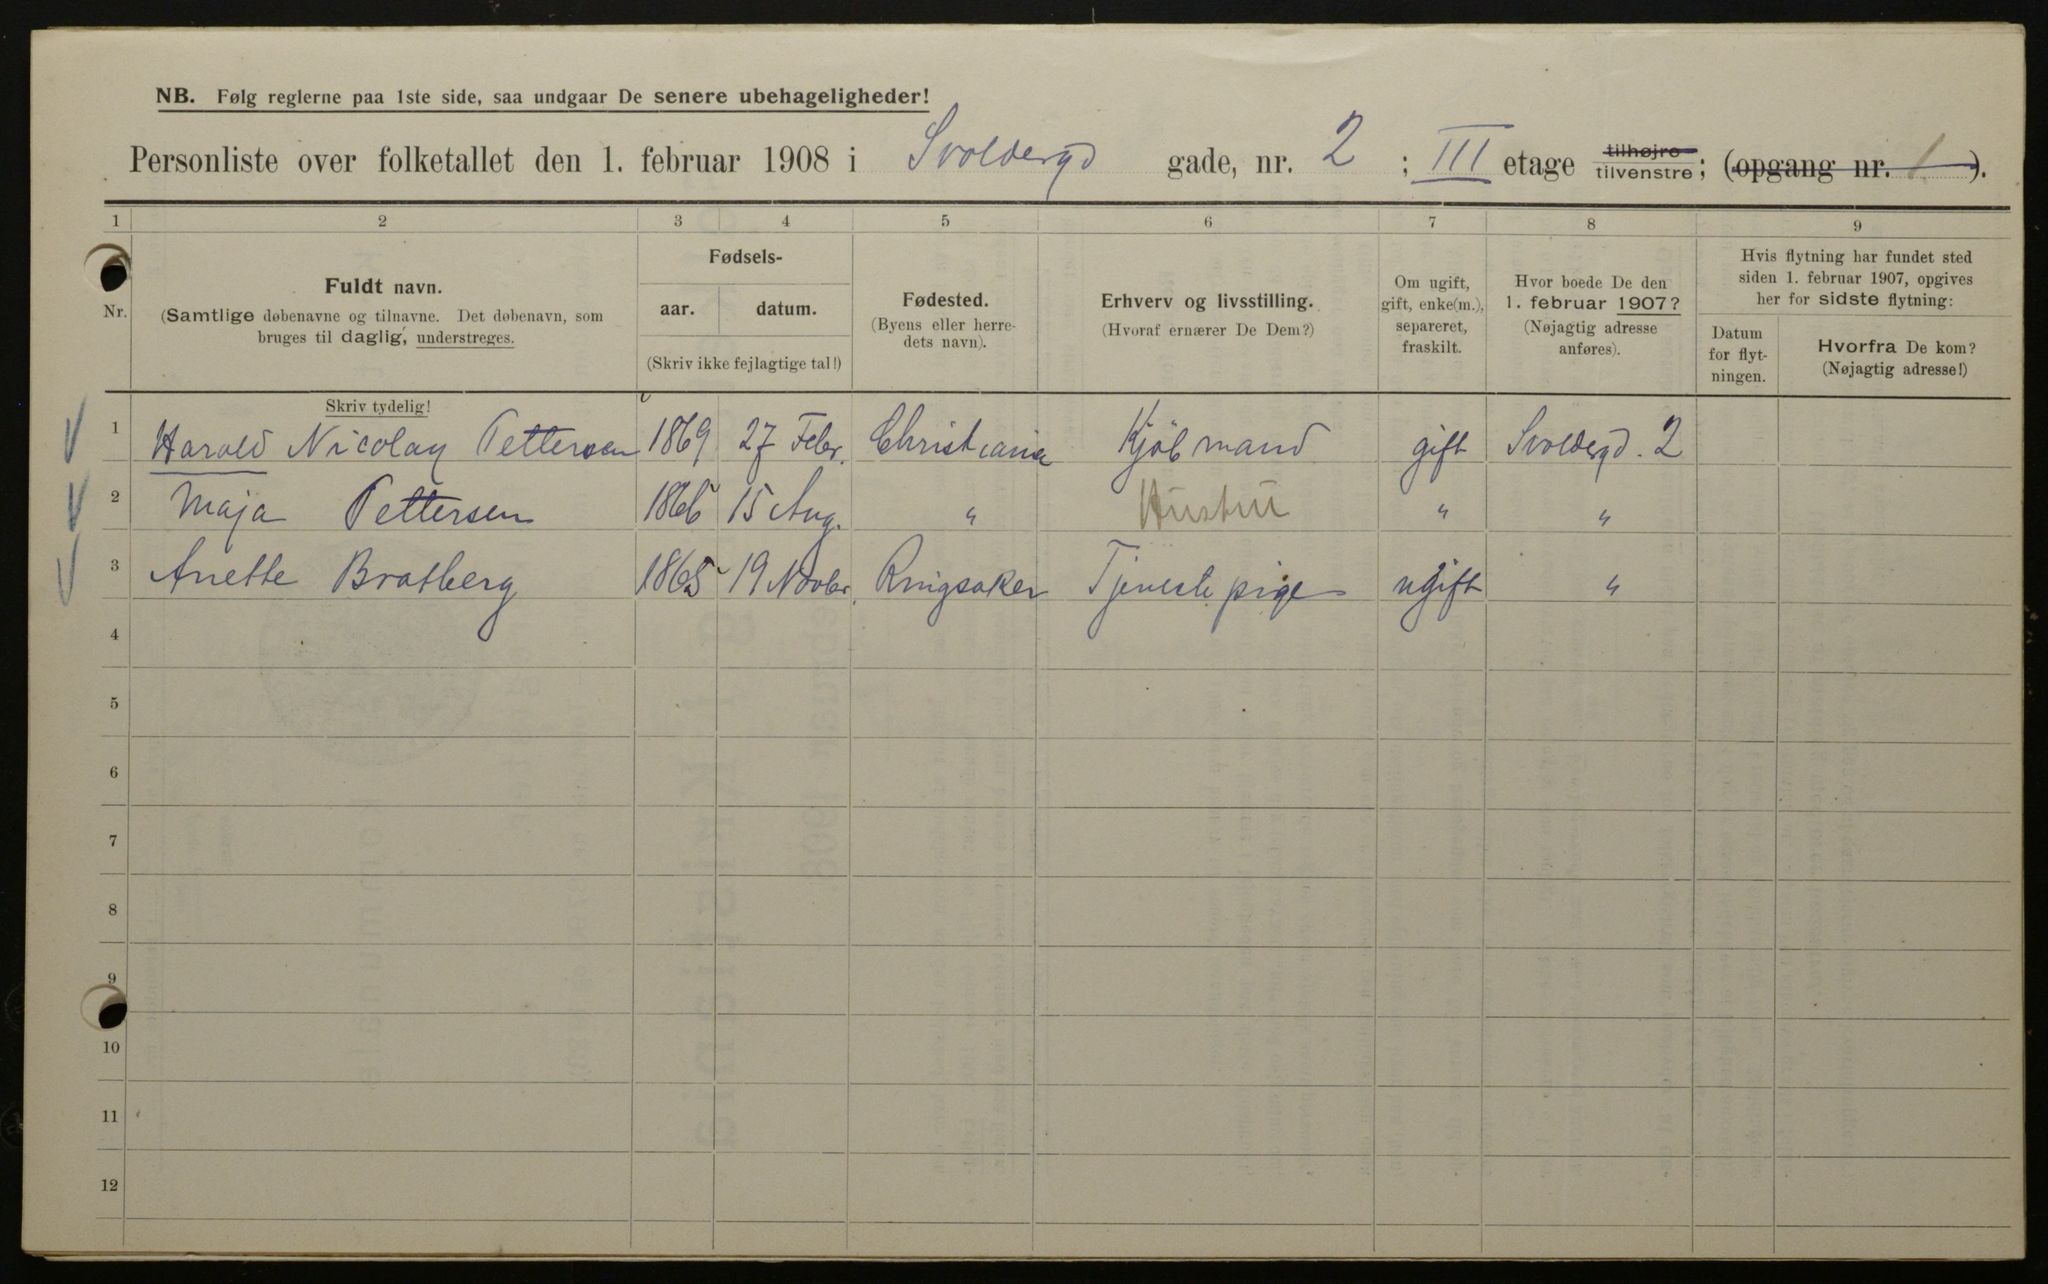 NB. Følg reglerne paa 1ste side, saa undgaar De senere ubehageligheder!
Personliste over folketallet den 1. februar 1908 i Svoldergd gade, nr. 2 ; III etage tilhøjre tilvenstre; (opgang nr. 1.).
1 2 3 4 5 6 7 8 9
Nr.
Fuldt navn.
(Samtlige døbenavne og tilnavne. Det døbenavn, som
bruges til daglig, understreges.
Skriv tydelig!
Fødsels-
aar. datum.
(Skriv ikke fejlagtige tal!)
Fødested.
(Byens eller herre-
dets navn).
Erhverv og livsstilling.
(Hvoraf ernærer De Dem?)
Om ugift,
gift, enke(m.),
separeret,
fraskilt.
Hvor boede De den
1. februar 1907?
(Nøjagtig adresse
anføres).
Hvis flytning har fundet sted
siden 1. februar 1907, opgives
her for sidste flytning:
Datum
for flyt-
ningen.
Hvorfra De kom?
(Nøjagtig adresse!)
1 Harald Nicolay Pettersen 1869 27 Febr. Christiania Kjöbmand gift Svoldergd. 2
2 Maja Pettersen 1866 15 Aug. " Hustru " "
3 Anette Bratberg 1865 19 Novbr. Ringsaker Tjenestepige ugift "
4
5
6
7
8
9
10
11
12